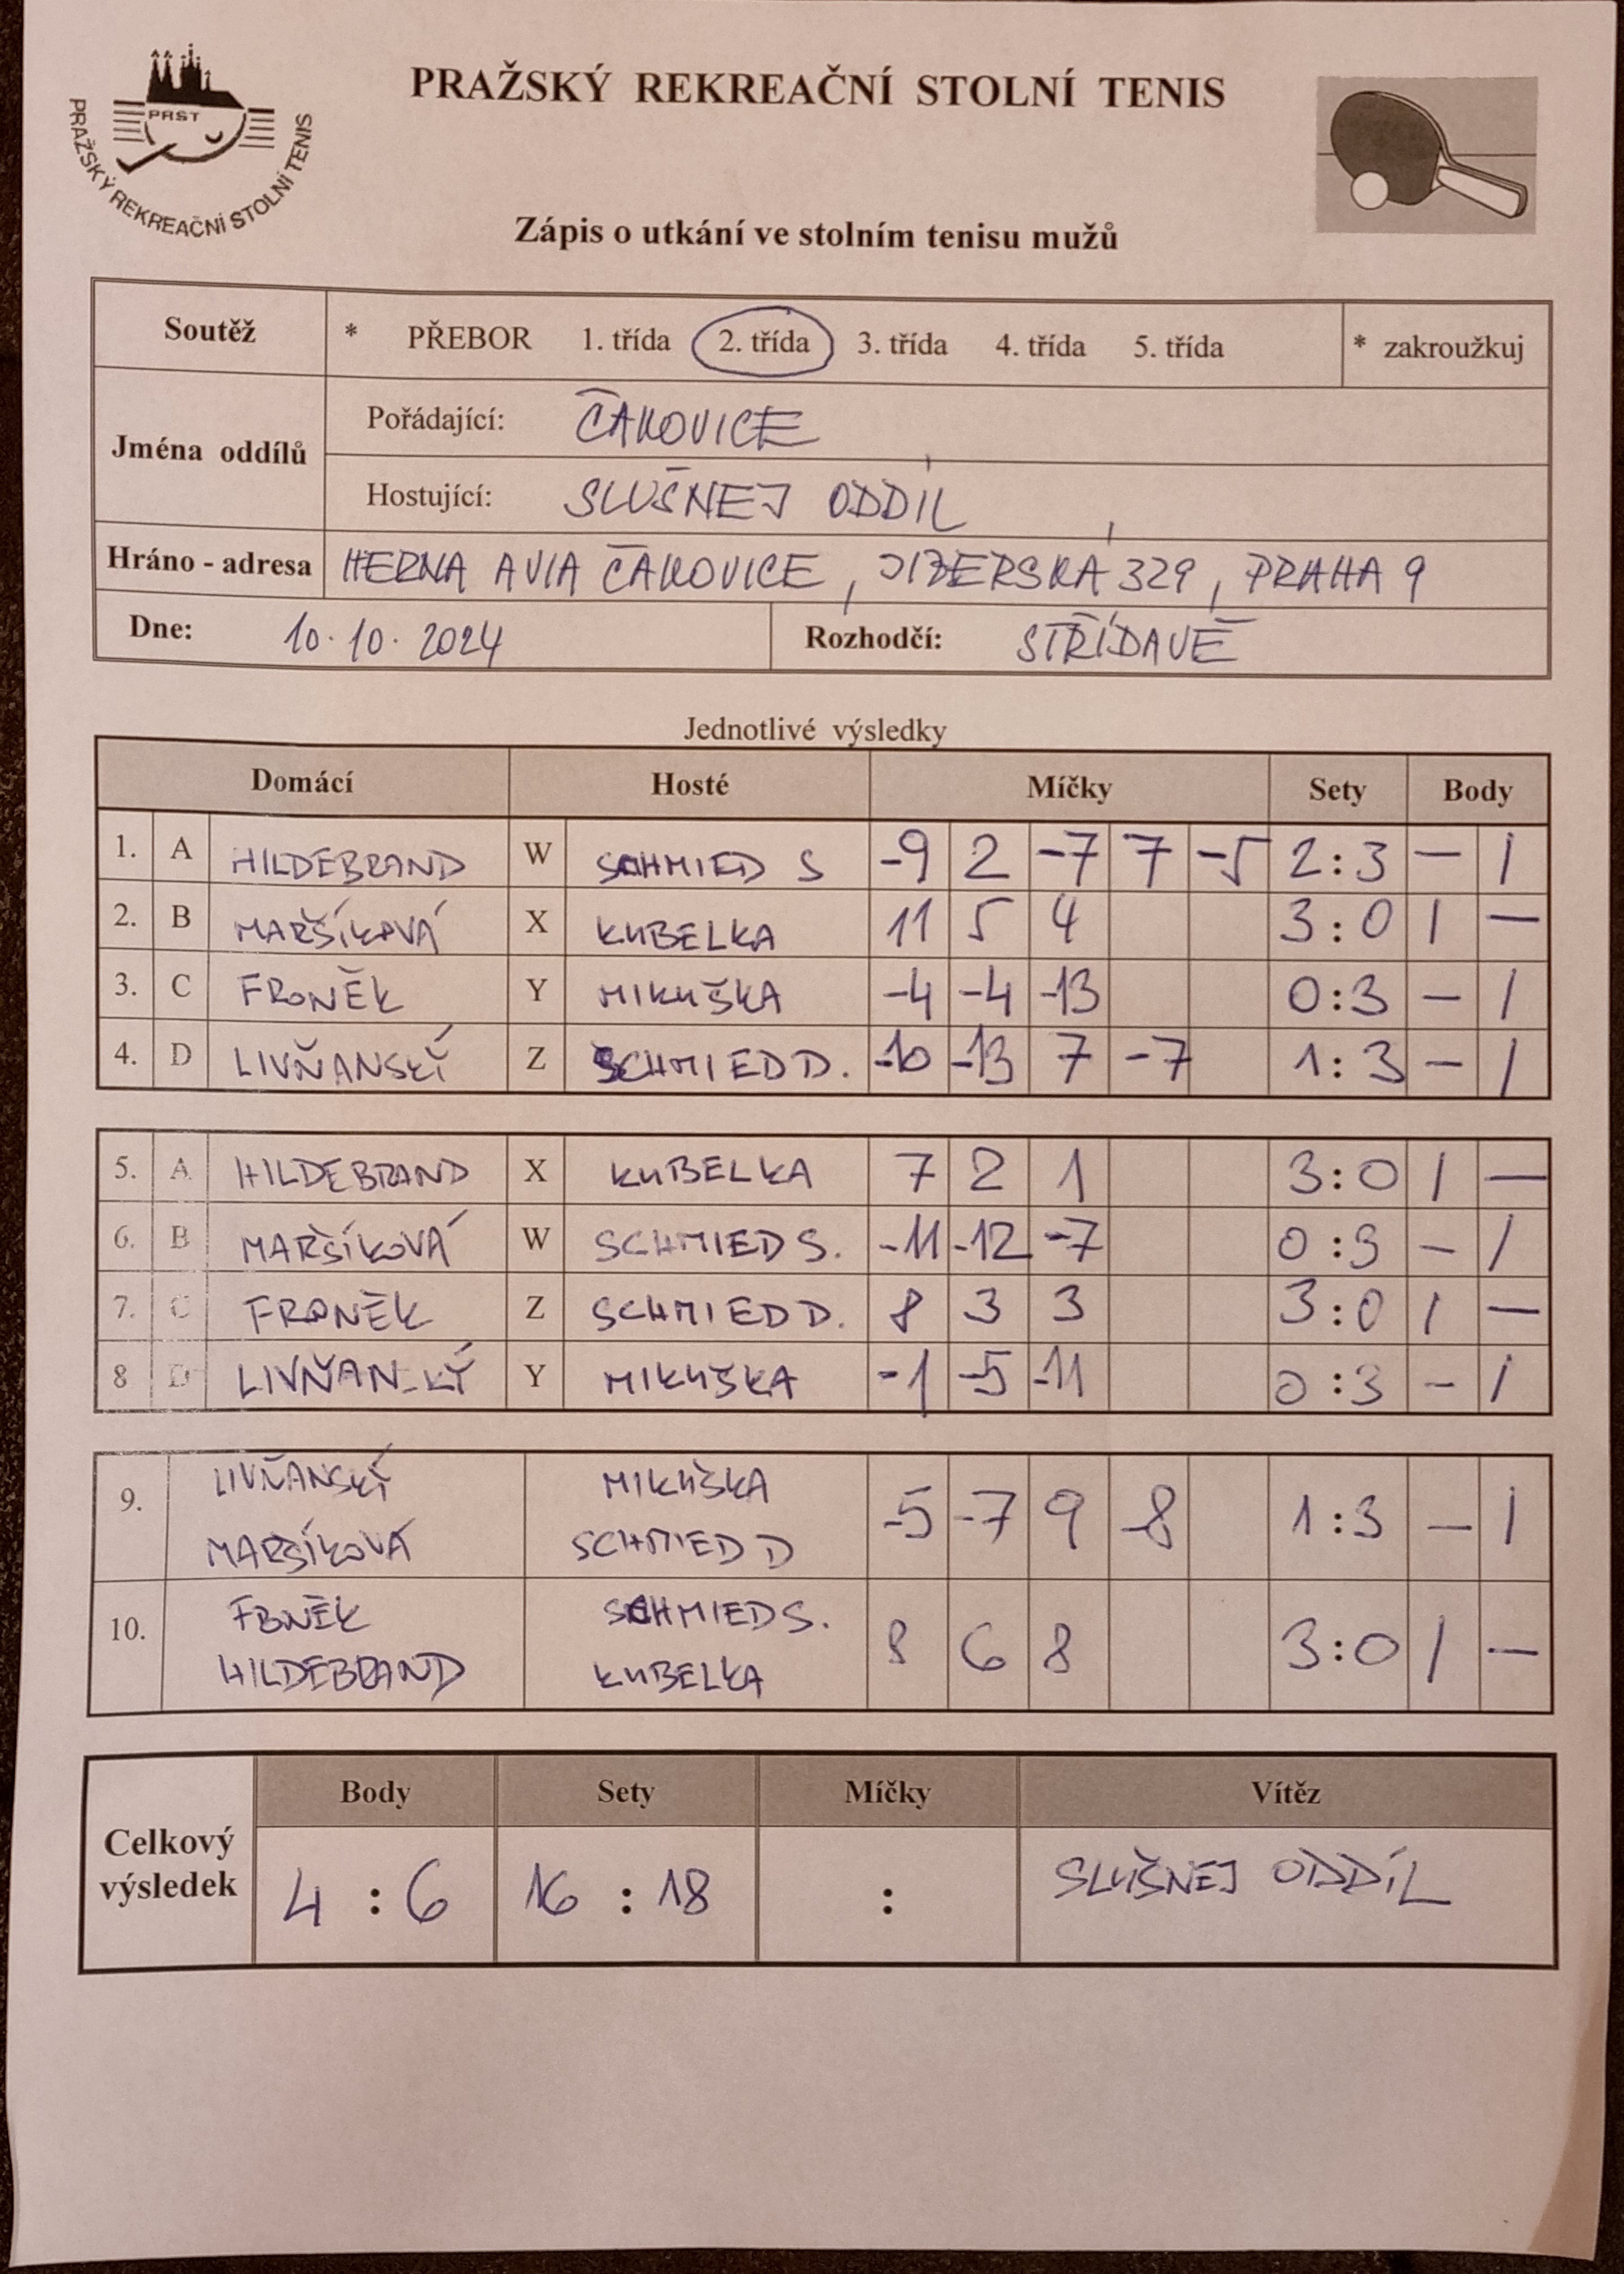 PRAŽSKÝ REKREAČNÍ STOLNÍ TENIS
PRST
PRAŽSKÝ REKREAČNÍ STOLNÍ TENIS
Zápis o utkání ve stolním tenisu mužů
Soutěž * PŘEBOR 1. třída 2. třída 3. třída 4. třída 5. třída * zakroužkuj
Jména oddílů
Pořádající: ČAKOVICE
Hostující: SLUŠNEJ ODDÍL
Hráno - adresa HERNA AVIA ČAKOVICE, JIZERSKÁ 329, PRAHA 9
Dne: 10.10.2024 Rozhodčí: STŘÍDAVĚ
Jednotlivé výsledky
Domácí Hosté Míčky Sety Body
1. A HILDEBRAND W SCHMIED S -9 2 -7 7 -5 2:3 — 1
2. B MARŠÍKOVÁ X KUBELKA 11 5 4 3:0 1 —
3. C FRONĚK Y MIKUŠKA -4 -4 -13 0:3 — 1
4. D LIVŇANSKÝ Z SCHMIED D. -10 -13 7 -7 1:3 — 1
5. A HILDEBRAND X KUBELKA 7 2 1 3:0 1 —
6. B MARŠÍKOVÁ W SCHMIED S. -11 -12 -7 0:3 — 1
7. C FRONĚK Z SCHMIED D. 8 3 3 3:0 1 —
8 D LIVŇANSKÝ Y MIKUŠKA -1 -5 -11 0:3 — 1
9. LIVŇANSKÝ MIKUŠKA -5 -7 9 -8 1:3 — 1
MARŠÍKOVÁ SCHMIED D
10. FRONĚK SCHMIED S. 8 6 8 3:0 1 —
HILDEBRAND KUBELKA
Celkový výsledek
Body Sety Míčky Vítěz
4 : 6 16 : 18 : SLUŠNEJ ODDÍL